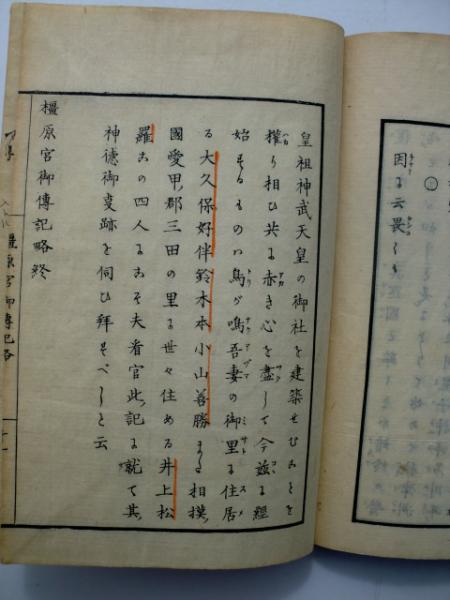 因に云畏くも
皇祖神武天皇の御社を建築せむことを
權り相ひ共に赤き心を盡して今茲に經
始するものハ鳥が鳴吾妻の御里に住居
る大久保好伴鈴木本小山善勝また相摸
國愛甲郡三田の里に世々住める井上松
羅この四人にこそ夫看官此記に就て其
神德御事跡を伺ひ拜すべしと云
橿原宮御傳記略終
橿原宮御傳記略